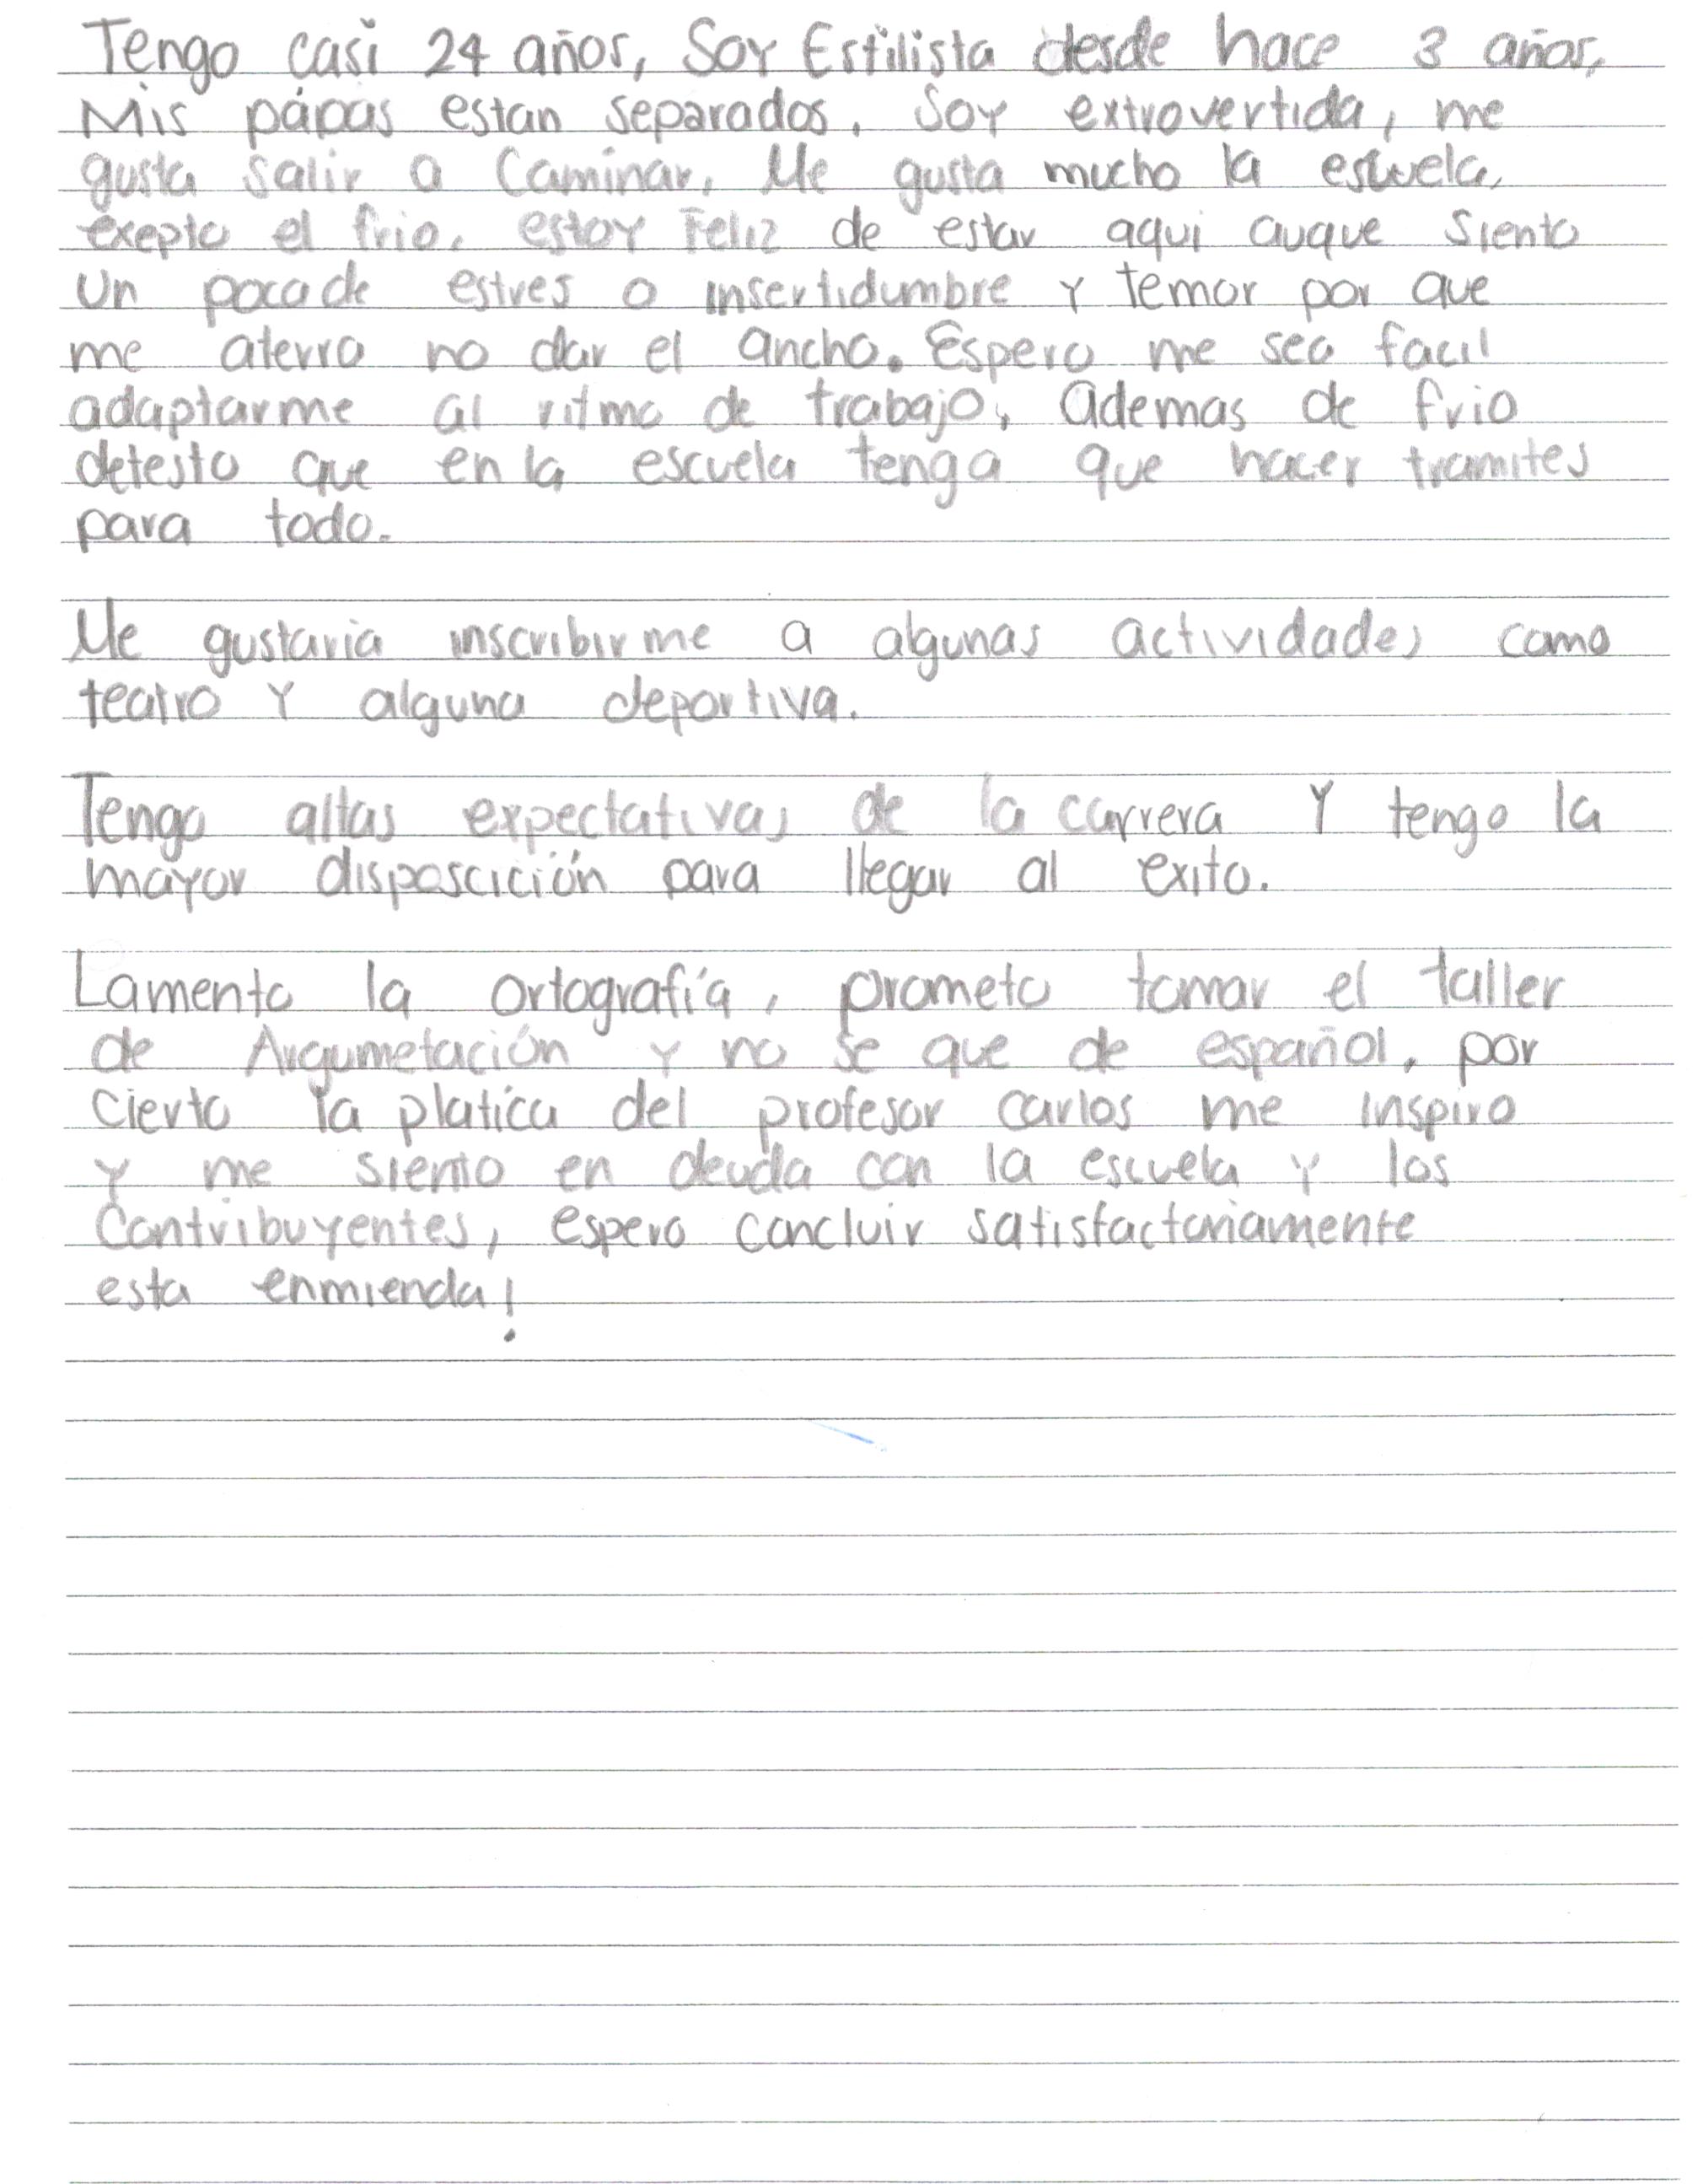 Tengo casi 24 años, Soy Estilista desde hace 3 años,
Mis pápas estan separados. Soy extrovertida, me
gusta salir a Caminar. Me gusta mucho la escuela,
exepto el frio. estoy Feliz de estar aqui auque siento
un poco de estres o insertidumbre y temor por que
me aterra no dar el ancho. Espero me sea facil
adaptarme al ritmo de trabajo, ademas de frio
detesto que en la escuela tenga que hacer tramites
para todo.
Me gustaria inscribirme a algunas actividades como
teatro y alguna deportiva.
Tengo altas expectativas de la carrera y tengo la
mayor disposcición para llegar al exito.
Lamento la ortografía, prometo tomar el taller
de Argumetación y no se que de español, por
cierto la platica del profesor carlos me inspiro
y me siento en deuda con la escuela y los
Contribuyentes, espero concluir satisfactoriamente
esta enmienda!